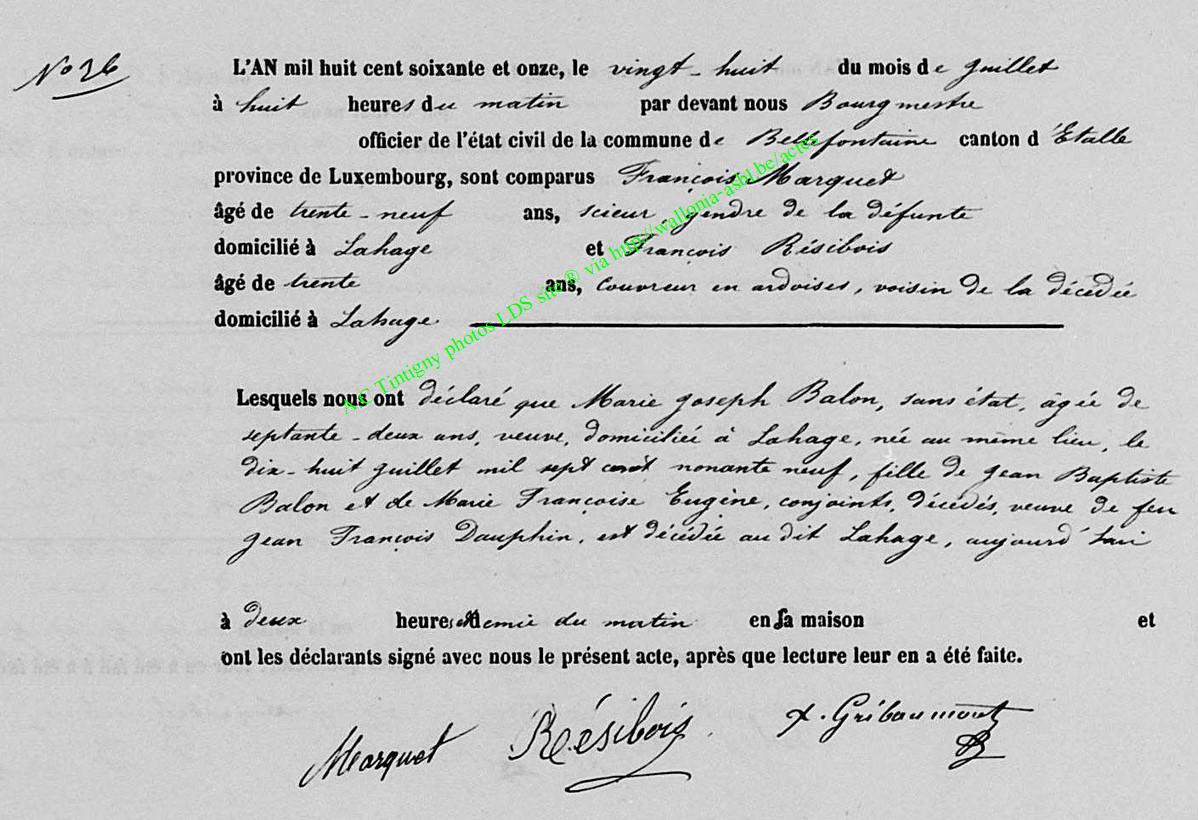 No 26
L'AN mil huit cent soixante et onze, le vingt-huit du mois de juillet
à huit heures du matin par devant nous Bourgmestre
officier de l'état civil de la commune de Bellefontaine canton d'Étalle
province de Luxembourg, sont comparus François Marquet
âgé de trente-neuf ans, scieur, gendre de la défunte
domicilié à Lahage et François Résibois
âgé de trente ans, couvreur en ardoises, voisin de la décédée
domicilié à Lahage
Lesquels nous ont déclaré que Marie Joseph Balon, sans état, âgée de
septante-deux ans, veuve, domiciliée à Lahage, née au même lieu, le
dix-huit juillet mil sept cent nonante neuf, fille de Jean Baptiste
Balon et de Marie Françoise Eugène, conjoints, décédés, veuve de feu
Jean François Dauphin, est décédée au dit Lahage, aujourd'hui
à deux heures demie du matin en sa maison et
ont les déclarants signé avec nous le présent acte, après que lecture leur en a été faite.
Marquet Résibois Gribaumont
A.E Tintigny photos LDS site® via http://wallonia-asbl.be/actes